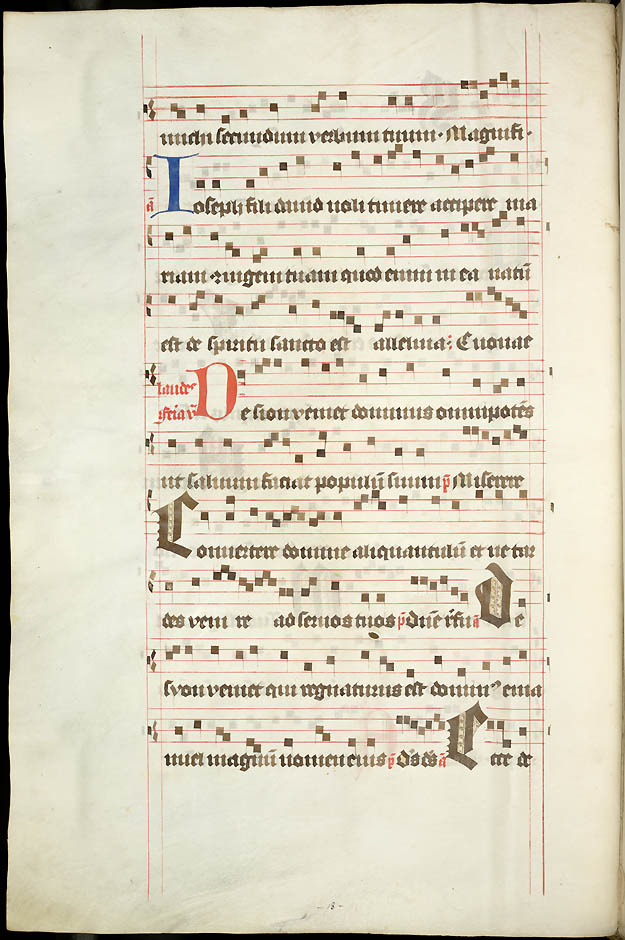 michi secundum verbum tuum · Magnifi ·
a Ioseph fili david noli timere accipere ma
riam ꝯiugem tuam quod enim in ea natū
est de spiritu sancto est alleluia · Euouae
laudes feria De sion veniet dominus omnipotēs
ut salvum faciat populū suum p̄ Miserere
Convertere domine aliquantulū et ne tar
des veni re ad servos tuos p̄ dn̄e a De
syon veniet qui regnaturus est domin⁹ ema
nuel magnū nomen eius p̄ a Ecce de
- 18 -